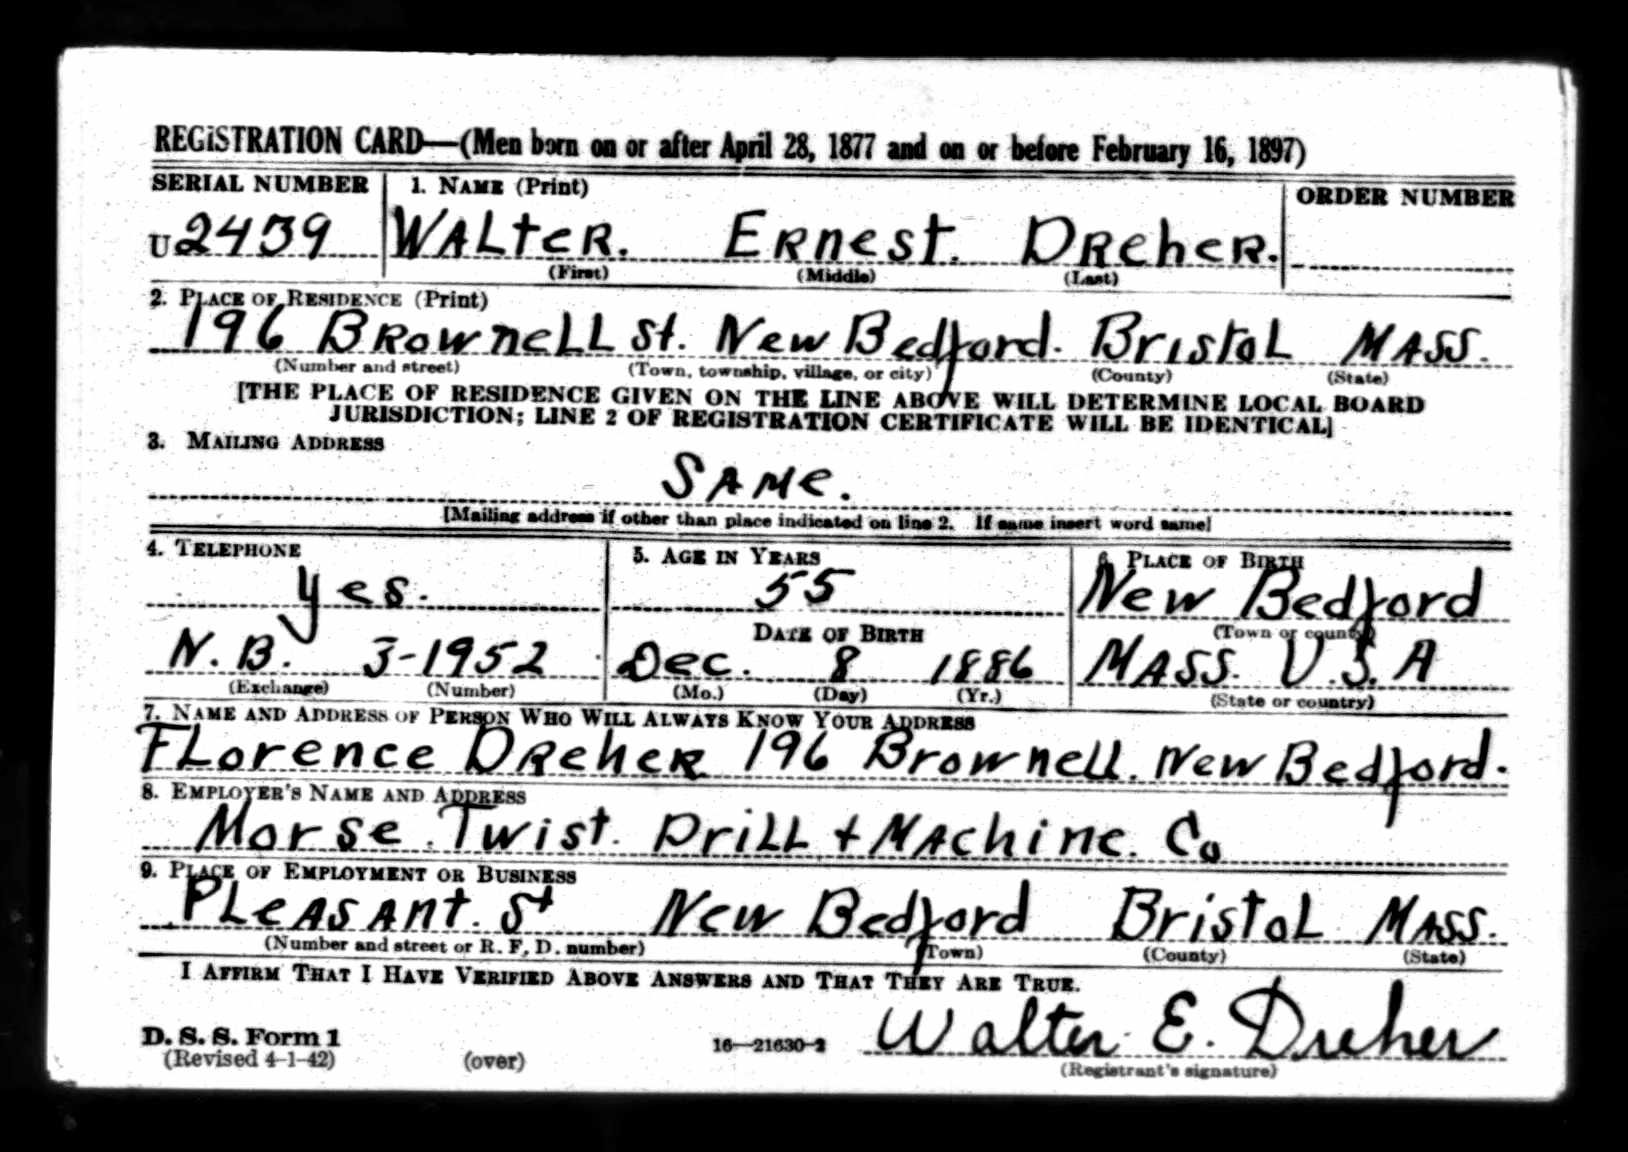 REGISTRATION CARD—(Men born on or after April 28, 1877 and on or before February 16, 1897)
SERIAL NUMBER 1. NAME (Print) ORDER NUMBER
U 2439 WALtER. ERnest. DREhER.
(First) (Middle) (Last)
2. PLACE OF RESIDENCE (Print)
196 BRowneLL St. New Bedford. BristoL MASS.
(Number and street) (Town, township, village, or city) (County) (State)
[THE PLACE OF RESIDENCE GIVEN ON THE LINE ABOVE WILL DETERMINE LOCAL BOARD
JURISDICTION; LINE 2 OF REGISTRATION CERTIFICATE WILL BE IDENTICAL]
3. MAILING ADDRESS
SAMe.
[Mailing address if other than place indicated on line 2. If same insert word same]
4. TELEPHONE 5. AGE IN YEARS 6. PLACE OF BIRTH
Yes. 55 New Bedford
DATE OF BIRTH (Town or county)
N.B. 3-1952 Dec. 8 1886 MASS. U.S.A
(Exchange) (Number) (Mo.) (Day) (Yr.) (State or country)
7. NAME AND ADDRESS OF PERSON WHO WILL ALWAYS KNOW YOUR ADDRESS
FLorence DReheR 196 Brownell. New Bedford.
8. EMPLOYER'S NAME AND ADDRESS
Morse. Twist. DriLL + MAchine. Co
9. PLACE OF EMPLOYMENT OR BUSINESS
PLeASAnt. St New Bedford BristoL MASS.
(Number and street or R. F. D. number) (Town) (County) (State)
I AFFIRM THAT I HAVE VERIFIED ABOVE ANSWERS AND THAT THEY ARE TRUE.
D. S. S. Form 1 Walter E. Dreher
(Revised 4-1-42) (over) 16—21630-2 (Registrant's signature)